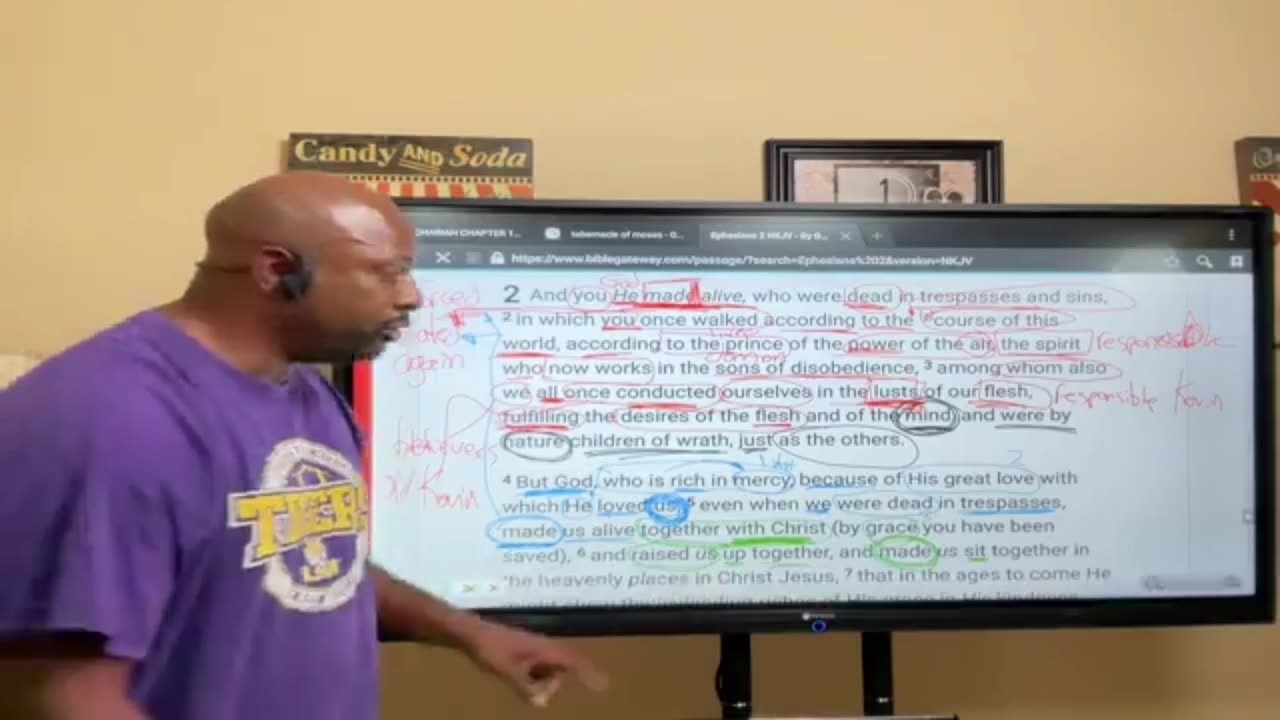 Candy AND Soda
CHAPTER 1...
tabernacle of moses - G...
Ephesians 2 NKJV - By G...
https://www.biblegateway.com/passage/?search=Ephesians%202&version=NKJV
God
2 And you He made alive, who were dead in trespasses and sins,
2 in which you once walked according to the course of this
world, according to the prince of the power of the air, the spirit
demon
again
who now works in the sons of disobedience, 3 among whom also
we all once conducted ourselves in the lusts of our flesh, responsible
fulfilling the desires of the flesh and of the mind, and were by
nature children of wrath, just as the others.
4 But God, who is rich in mercy, because of His great love with
which He loved us, 5 even when we were dead in trespasses,
made us alive together with Christ (by grace you have been
saved), 6 and raised us up together, and made us sit together in
the heavenly places in Christ Jesus, 7 that in the ages to come He
TIGERS
LSU